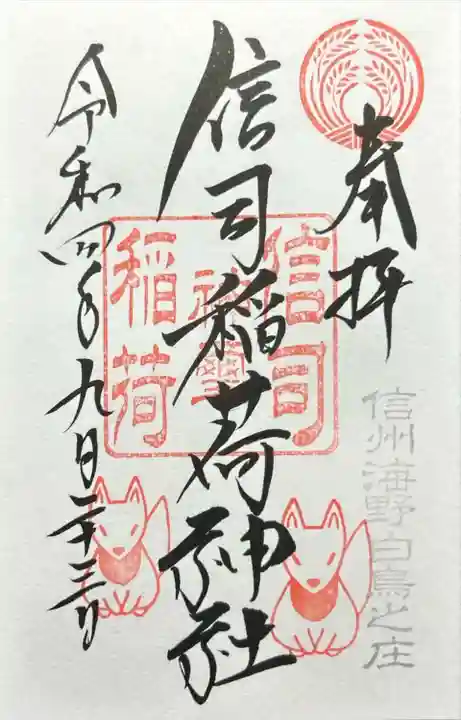 奉拝
信州海野白鳥之庄
信司稲荷神社
信司
稲荷
令和四年九月二十三日